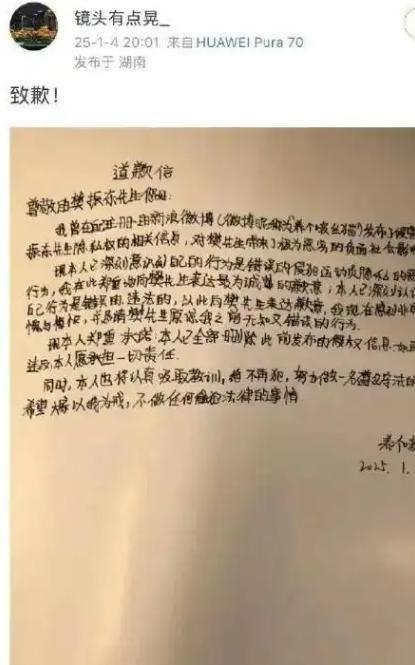 镜头有点晃_
25-1-4 20:01 来自HUAWEI Pura 70
发布于 湖南
致歉！
道歉信
尊敬的樊振东先生你好：
我曾在在注册的新浪微博（微博昵称为养个
发布了
振东先生隐私权的相关信息，对樊先生带来了极为恶劣的负面社会影
现本人已深刻意识到自己的行为是错误的侵犯运动员隐私的
行为，我在此郑重的向樊先生表达最为诚挚的歉意；本人已深刻认识
自己行为是错误的、违法的，以此向樊先生表达歉意，我现在感到非
愧与愧疚，并恳请樊先生原谅我之前无知又错误的行为。
现本人郑重承诺：本人已全部删除此前发布的侵权信息
本人愿承担一切责任。
同时，本人也将认真吸取教训，绝不再犯，努力做一名遵纪守法的
希望大家以我为戒，不做任何触犯法律的事情
2025.1.